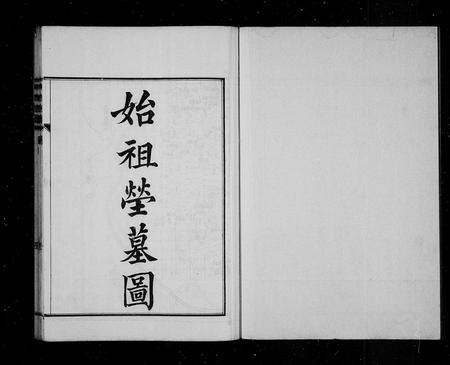 始祖塋墓圖